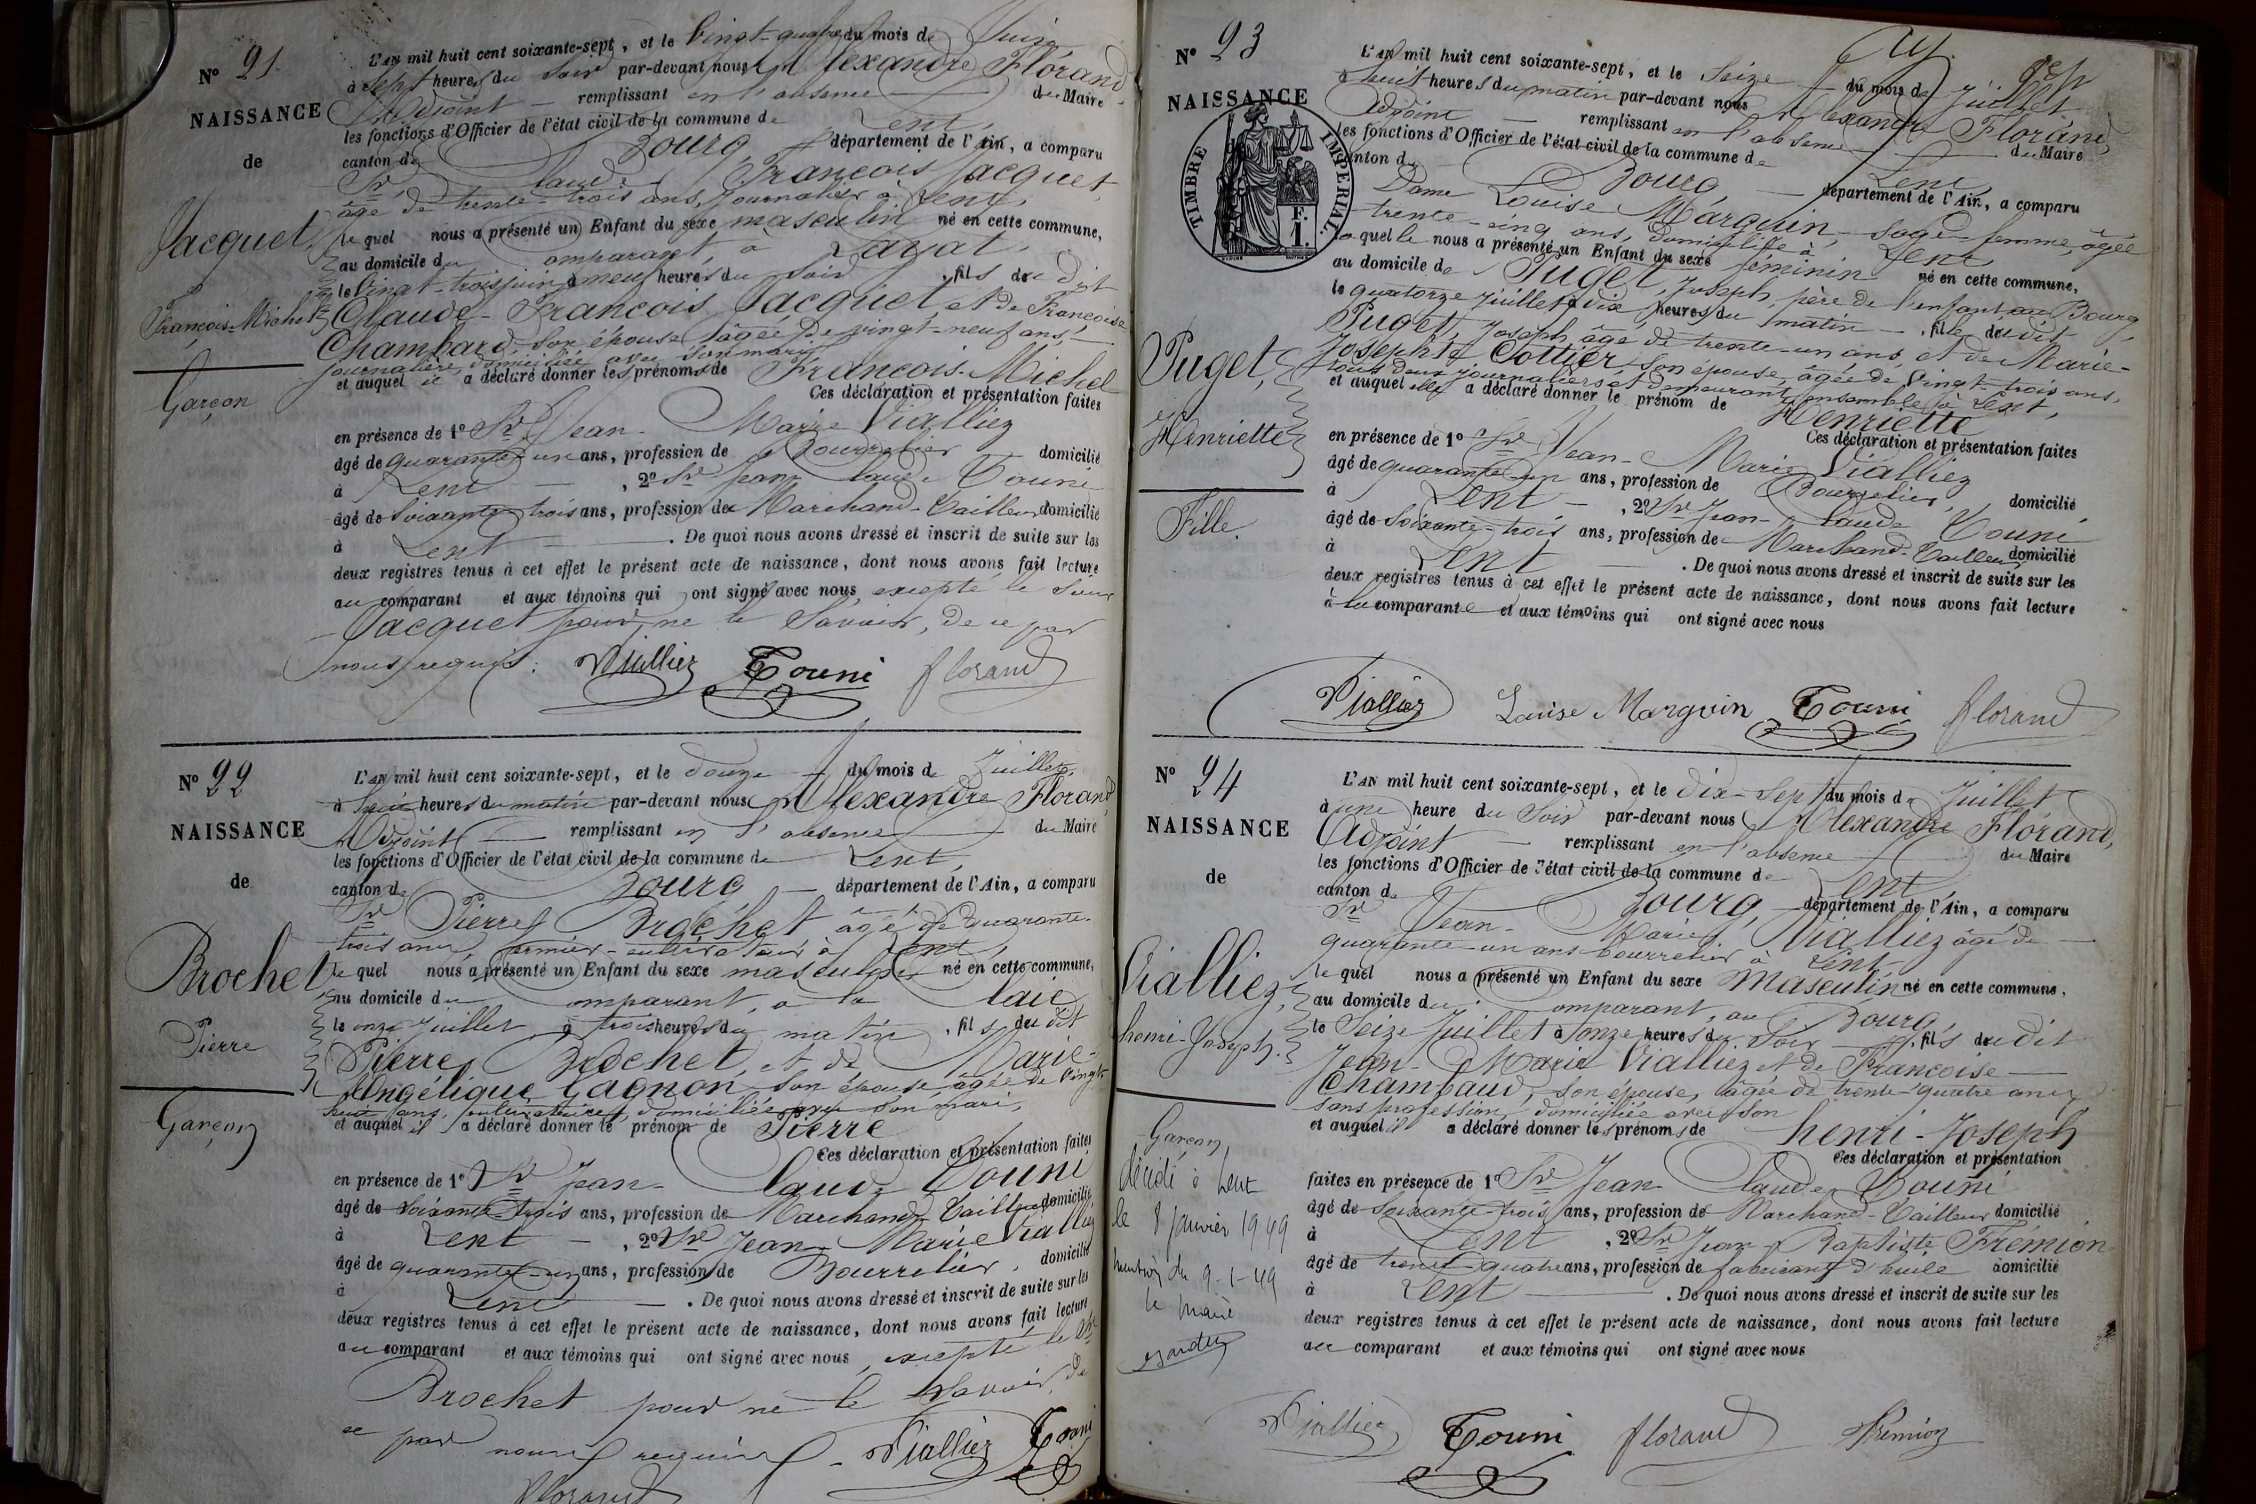 N° 21
NAISSANCE
de
Jacquet,
François-Michel
Garçon
L'AN mil huit cent soixante-sept, et le vingt-quatre du mois de Juin
à sept heures du soir par-devant nous Alexandre Florand
Adjoint remplissant en l'absence du Maire
les fonctions d'Officier de l'état civil de la commune de Lent,
canton de Bourg département de l'Ain, a comparu
Sr Claude François Jacquet,
âgé de trente-trois ans, Journalier à Lent,
lequel nous a présenté un Enfant du sexe masculin né en cette commune,
au domicile du comparant, à Layat,
le vingt-trois juin à neuf heures du soir, fils du dit
Claude-François Jacquet et de Françoise
Chambard, son épouse, âgée de vingt-neuf ans,
journalière, domiciliée avec son mari,
et auquel il a déclaré donner les prénoms de François-Michel
Ces déclaration et présentation faites
en présence de 1° Sr Jean-Marie Vialliez
âgé de quarante-un ans, profession de Bourrelier domicilié
à Lent, 2° Sr Jean Claude Touni
âgé de soixante-trois ans, profession de Marchand-Tailleur domicilié
à Lent. De quoi nous avons dressé et inscrit de suite sur les
deux registres tenus à cet effet le présent acte de naissance, dont nous avons fait lecture
au comparant et aux témoins qui ont signé avec nous, excepté le Sieur
Jacquet pour ne le savoir, de ce par
nous requis.
Vialliez Touni florand
N° 22
NAISSANCE
de
Brochet
Pierre
Garçon
L'AN mil huit cent soixante-sept, et le douze du mois de Juillet,
à huit heures du matin par-devant nous Alexandre Florand,
Adjoint remplissant en l'absence du Maire
les fonctions d'Officier de l'état civil de la commune de Lent,
canton de Bourg département de l'Ain, a comparu
Sr Pierre Brochet âgé de quarante-
trois ans, fermier-cultivateur à Lent,
lequel nous a présenté un Enfant du sexe masculin né en cette commune,
au domicile du comparant, à la Claie,
le onze Juillet à trois heures du matin, fils du dit
Pierre Brochet, et de Marie-
Angélique Gagnon, son épouse, âgée de vingt-
huit ans, cultivatrice, domiciliée avec son mari,
et auquel il a déclaré donner le prénom de Pierre
Ces déclaration et présentation faites
en présence de 1° Sr Jean-Claude Touni
âgé de soixante-trois ans, profession de Marchand Tailleur domicilié
à Lent, 2° Sr Jean-Marie Vialliez
âgé de quarante-un ans, profession de Bourrelier, domicilié
à Lent. De quoi nous avons dressé et inscrit de suite sur les
deux registres tenus à cet effet le présent acte de naissance, dont nous avons fait lecture
au comparant et aux témoins qui ont signé avec nous, excepté le Sr
Brochet pour ne le savoir, de
ce par nous requis. Vialliez Touni
florand
N° 23
NAISSANCE
TIMBRE IMPERIAL.
F.
1.
Puget,
Henriette
Fille.
L'AN mil huit cent soixante-sept, et le Seize du mois de Juillet
à huit heures du matin par-devant nous Alexandre Florand,
Adjoint remplissant en l'absence du Maire
les fonctions d'Officier de l'état civil de la commune de Lent,
canton de Bourg, département de l'Ain, a comparu
Dame Louise Marguin, sage-femme, âgée
trente-cinq ans, domiciliée à Lent,
laquelle nous a présenté un Enfant du sexe féminin né en cette commune,
au domicile de Puget, Joseph, père de l'enfant au Bourg,
le quatorze Juillet à dix heures du matin, fille du dit
Puget, Joseph, âgé de trente-un ans, et de Marie-
Josephte Cottier, son épouse, âgée de vingt-trois ans,
tous deux journaliers et demeurant ensemble à Lent,
et auquel elle a déclaré donner le prénom de Henriette
Ces déclaration et présentation faites
en présence de 1° Sr Jean-Marie Vialliez
âgé de quarante-un ans, profession de Bourrelier, domicilié
à Lent, 2° Sr Jean-Claude Touni
âgé de soixante-trois ans, profession de Marchand-Tailleur domicilié
à Lent. De quoi nous avons dressé et inscrit de suite sur les
deux registres tenus à cet effet le présent acte de naissance, dont nous avons fait lecture
à la comparante et aux témoins qui ont signé avec nous
Vialliez Louise Marguin Touni florand
N° 24
NAISSANCE
de
Vialliez,
henri-Joseph.
Garçon
décédé à Lent
le 8 janvier 1949
mention du 9-1-49
le maire
L'AN mil huit cent soixante-sept, et le dix-sept du mois de Juillet
à une heure du soir par-devant nous Alexandre Florand,
Adjoint remplissant en l'absence du Maire
les fonctions d'Officier de l'état civil de la commune de Lent,
canton de Bourg, département de l'Ain, a comparu
Sr Jean-Marie Vialliez âgé de
quarante-un ans bourrelier à Lent
lequel nous a présenté un Enfant du sexe Masculin né en cette commune,
au domicile du comparant, au Bourg,
le Seize Juillet à onze heures du soir, fils du dit
Jean-Marie Vialliez et de Françoise
Chambaud, son épouse, âgée de trente-quatre ans
sans profession, domiciliée avec son
et auquel il a déclaré donner les prénoms de henri-Joseph
Ces déclaration et présentation
faites en présence de 1° Sr Jean Claude Touni
âgé de soixante-trois ans, profession de Marchand-Tailleur domicilié
à Lent, 2° Sr Jean-Baptiste Frémion
âgé de trente-quatre ans, profession de fabricant d'huile domicilié
à Lent. De quoi nous avons dressé et inscrit de suite sur les
deux registres tenus à cet effet le présent acte de naissance, dont nous avons fait lecture
au comparant et aux témoins qui ont signé avec nous
Vialliez Touni florand Frémion